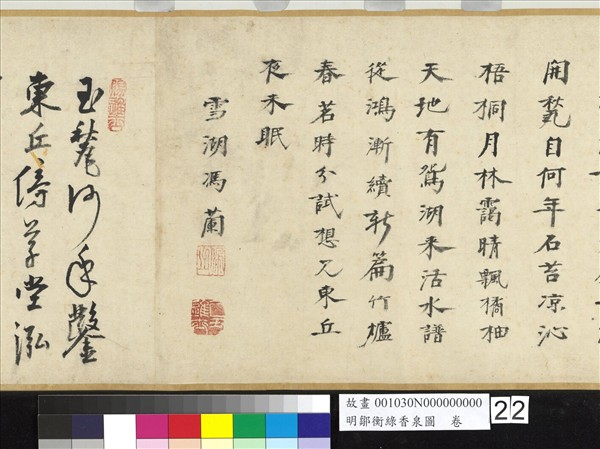 開甃自何年石苔凉沁
梧桐月林靄晴飄橘柚
天地有鴛湖來活水譜
從鴻漸續新篇竹爐
春茗時分試想見東丘
夜未眠
雪湖馮蘭
玉甃何年鑿
東丘傍草堂泓
故畫 001030N000000000
明鄒衡綠香泉圖 卷
22